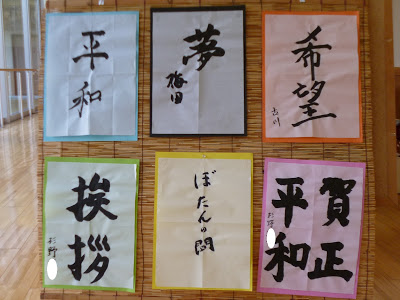 平和
夢
梅田
希望
挨拶
杉野
ぼたんの間
賀正
平和
杉野